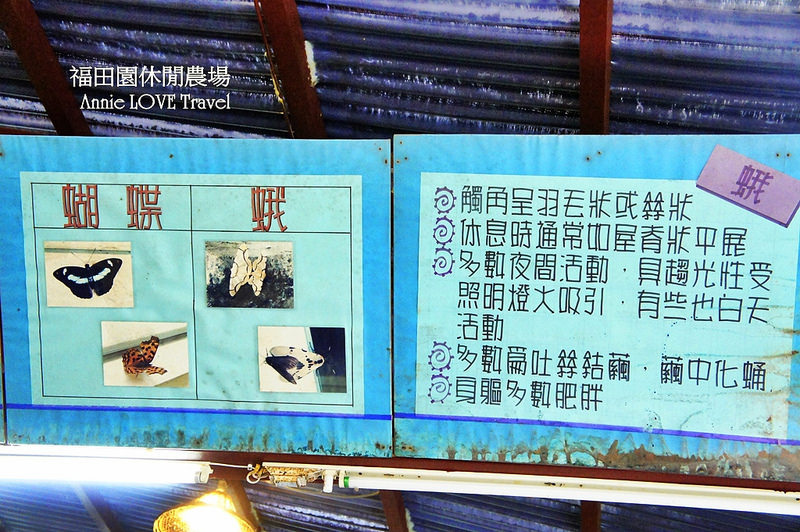 福田園休閒農場
Annie LOVE Travel
蝴 蝶 蛾
蛾
觸角呈羽毛狀或絲狀
休息時通常如屋脊狀平展
多數夜間活動，具趨光性受
照明燈火吸引，有些也白天
活動
多數會吐絲結繭，繭中化蛹
身軀多數肥胖